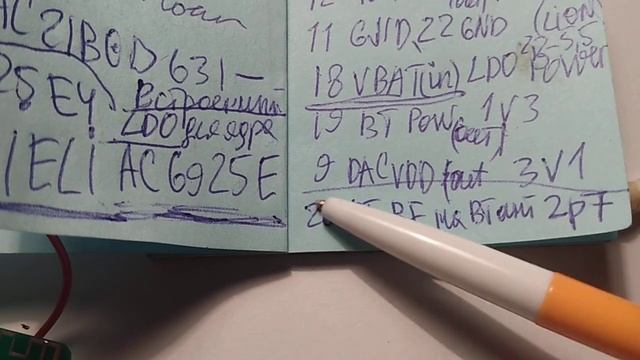 AC21BOD631-
25EY Встроенный
LDO для ядра
1ELI AC6925E
12
11 GND, 22 GND (LiON
18 VBAT(in) LDO 2,2-5,5 Power
19 BT POW (out) 1V3
9 DACVDD (out 3V1
BT RF на BTант 2pF